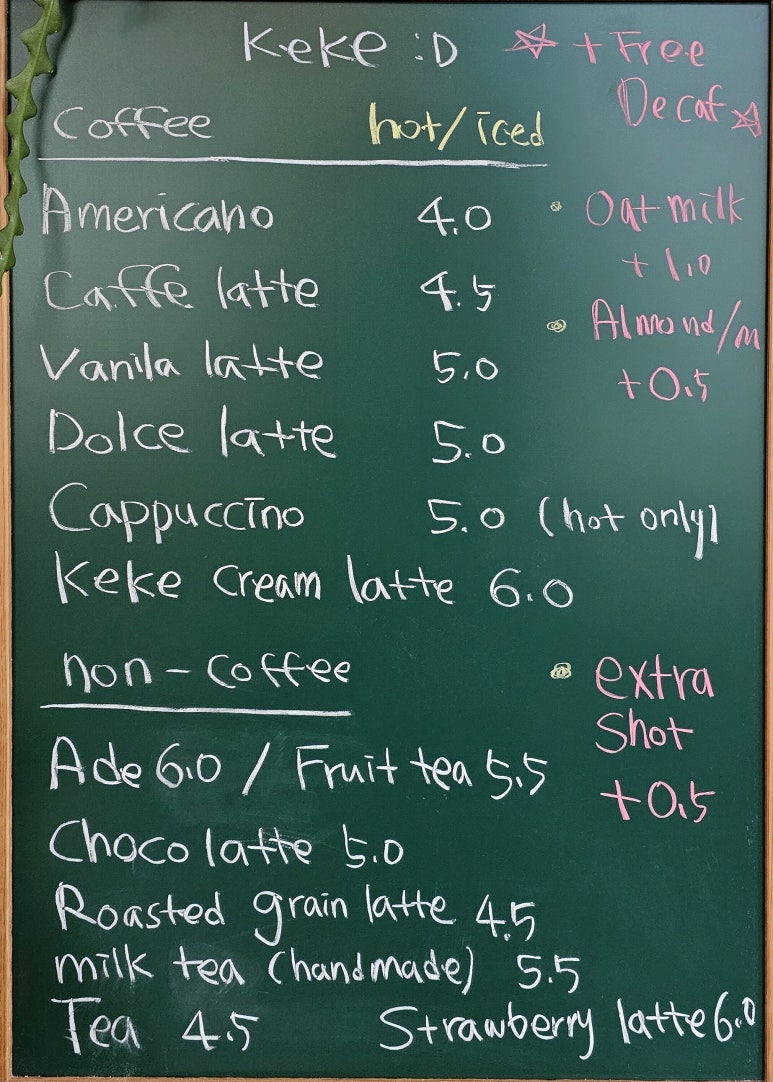 Keke :D ☆ + Free
Decaf ☆
Coffee hot/iced
Americano 4.0
Caffe latte 4.5
Vanila latte 5.0
Dolce latte 5.0
Cappuccino 5.0 (hot only)
Keke cream latte 6.0
• Oat milk
+ 1.0
• Almond/m
+0.5
non-coffee
Ade 6.0 / Fruit tea 5.5
Choco latte 5.0
Roasted grain latte 4.5
milk tea (handmade) 5.5
Tea 4.5 Strawberry latte 6.0
• extra
shot
+0.5